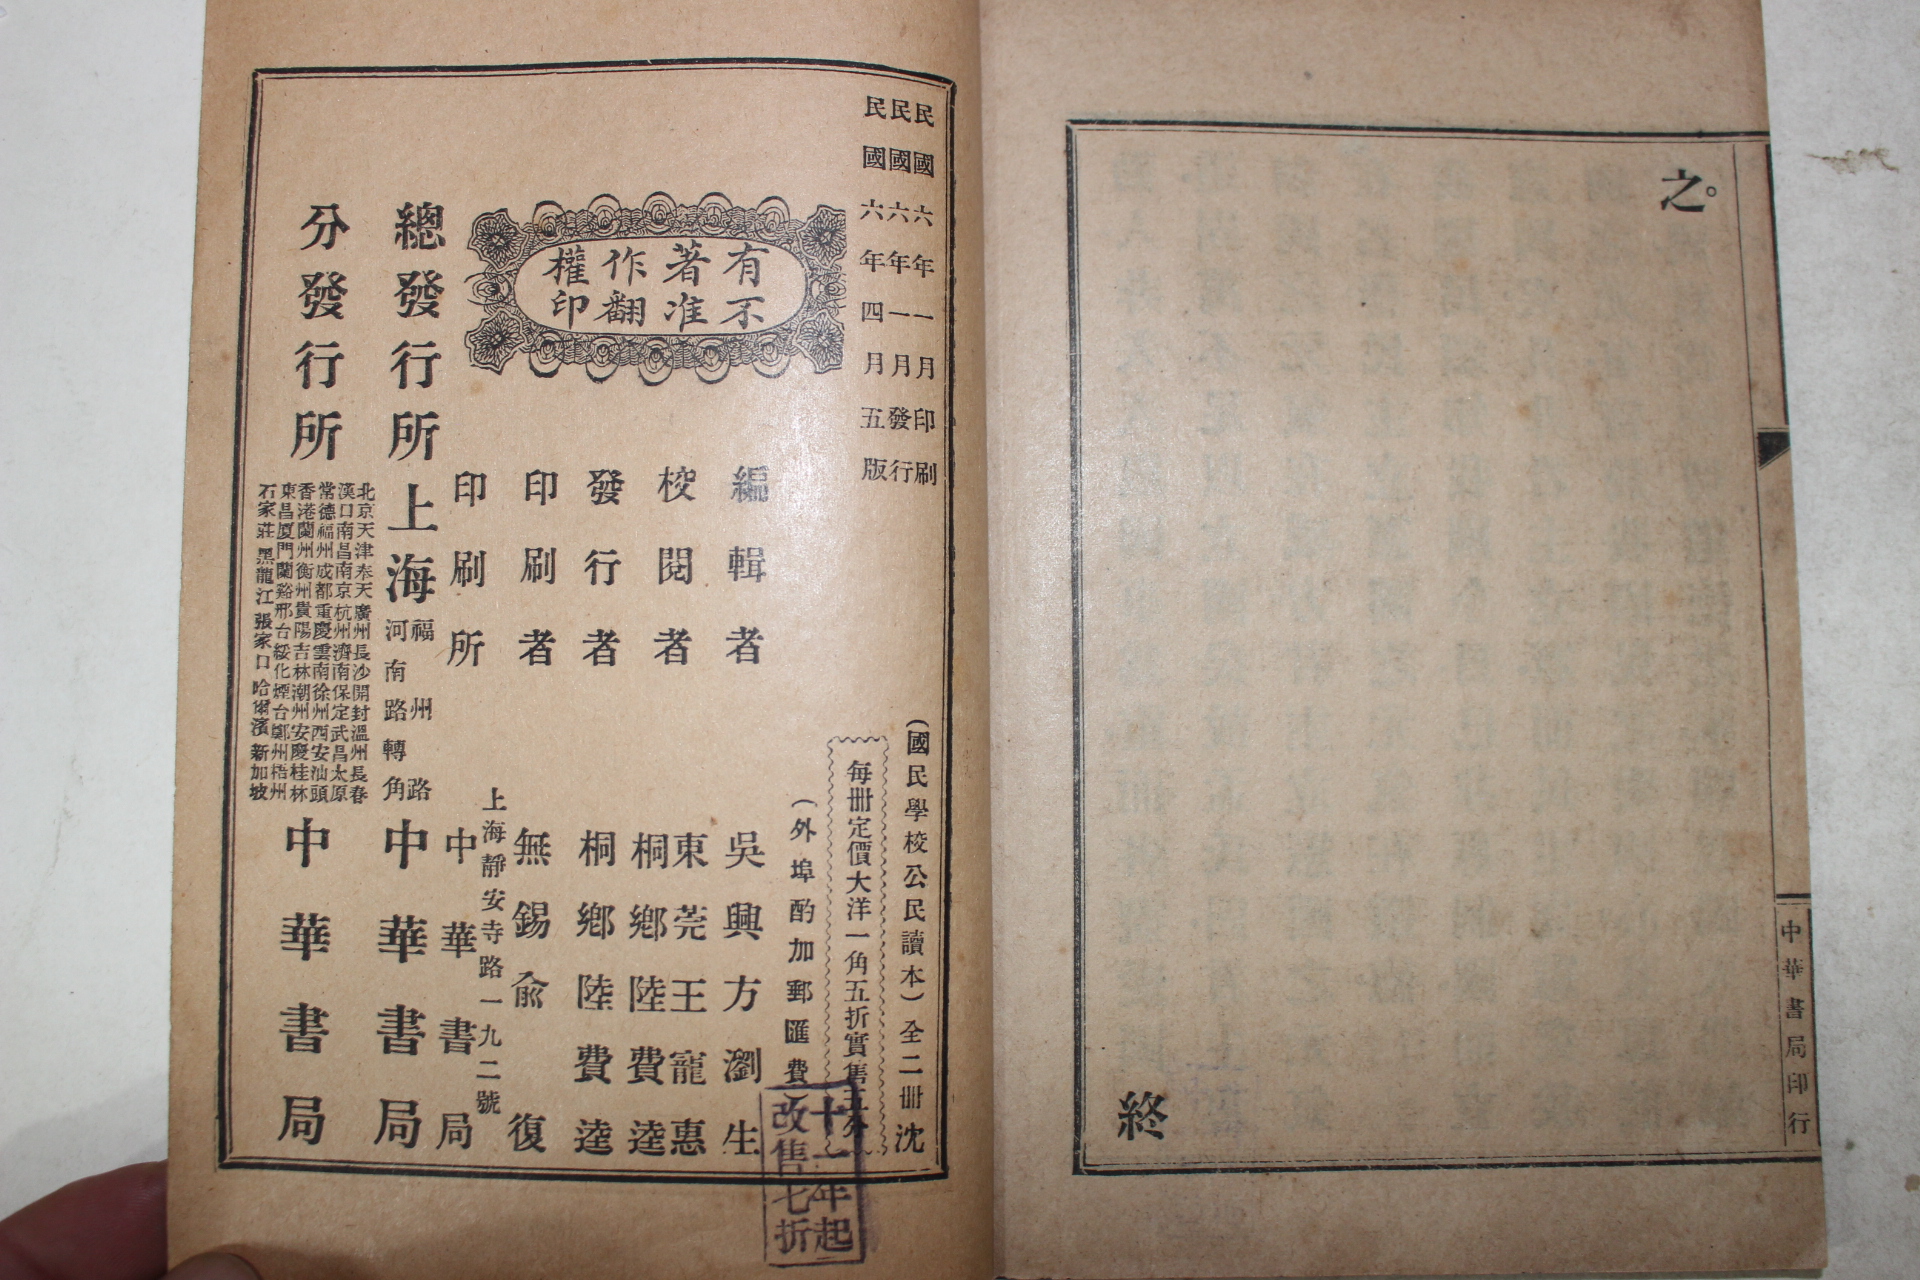 之。
終
中華書局印行
民國六年一月印刷
民國六年一月發行
民國六年四月五版
有著作權
不准翻印
(國民學校公民讀本)全二冊沈
每冊定價大洋一角五折實售
(外埠酌加郵匯費)
十一年起
改售七折
編輯者 吳興方瀏生
校閱者 東莞王寵惠
桐鄉陸費逵
發行者 桐鄉陸費逵
印刷者 無錫俞復
印刷所 上海靜安寺路一九二號
中華書局
總發行所 上海 福州路
河南路轉角
中華書局
分發行所
北京天津奉天廣州長沙開封溫州長春
漢口南昌南京杭州濟南保定武昌太原
常德福州成都重慶雲南徐州西安汕頭
香港蘭州衡州貴陽吉林潮州安慶桂林
東昌廈門蘭谿邢台綏化煙台鄭州梧州
石家莊 黑龍江 張家口 哈爾濱 新加坡
中華書局